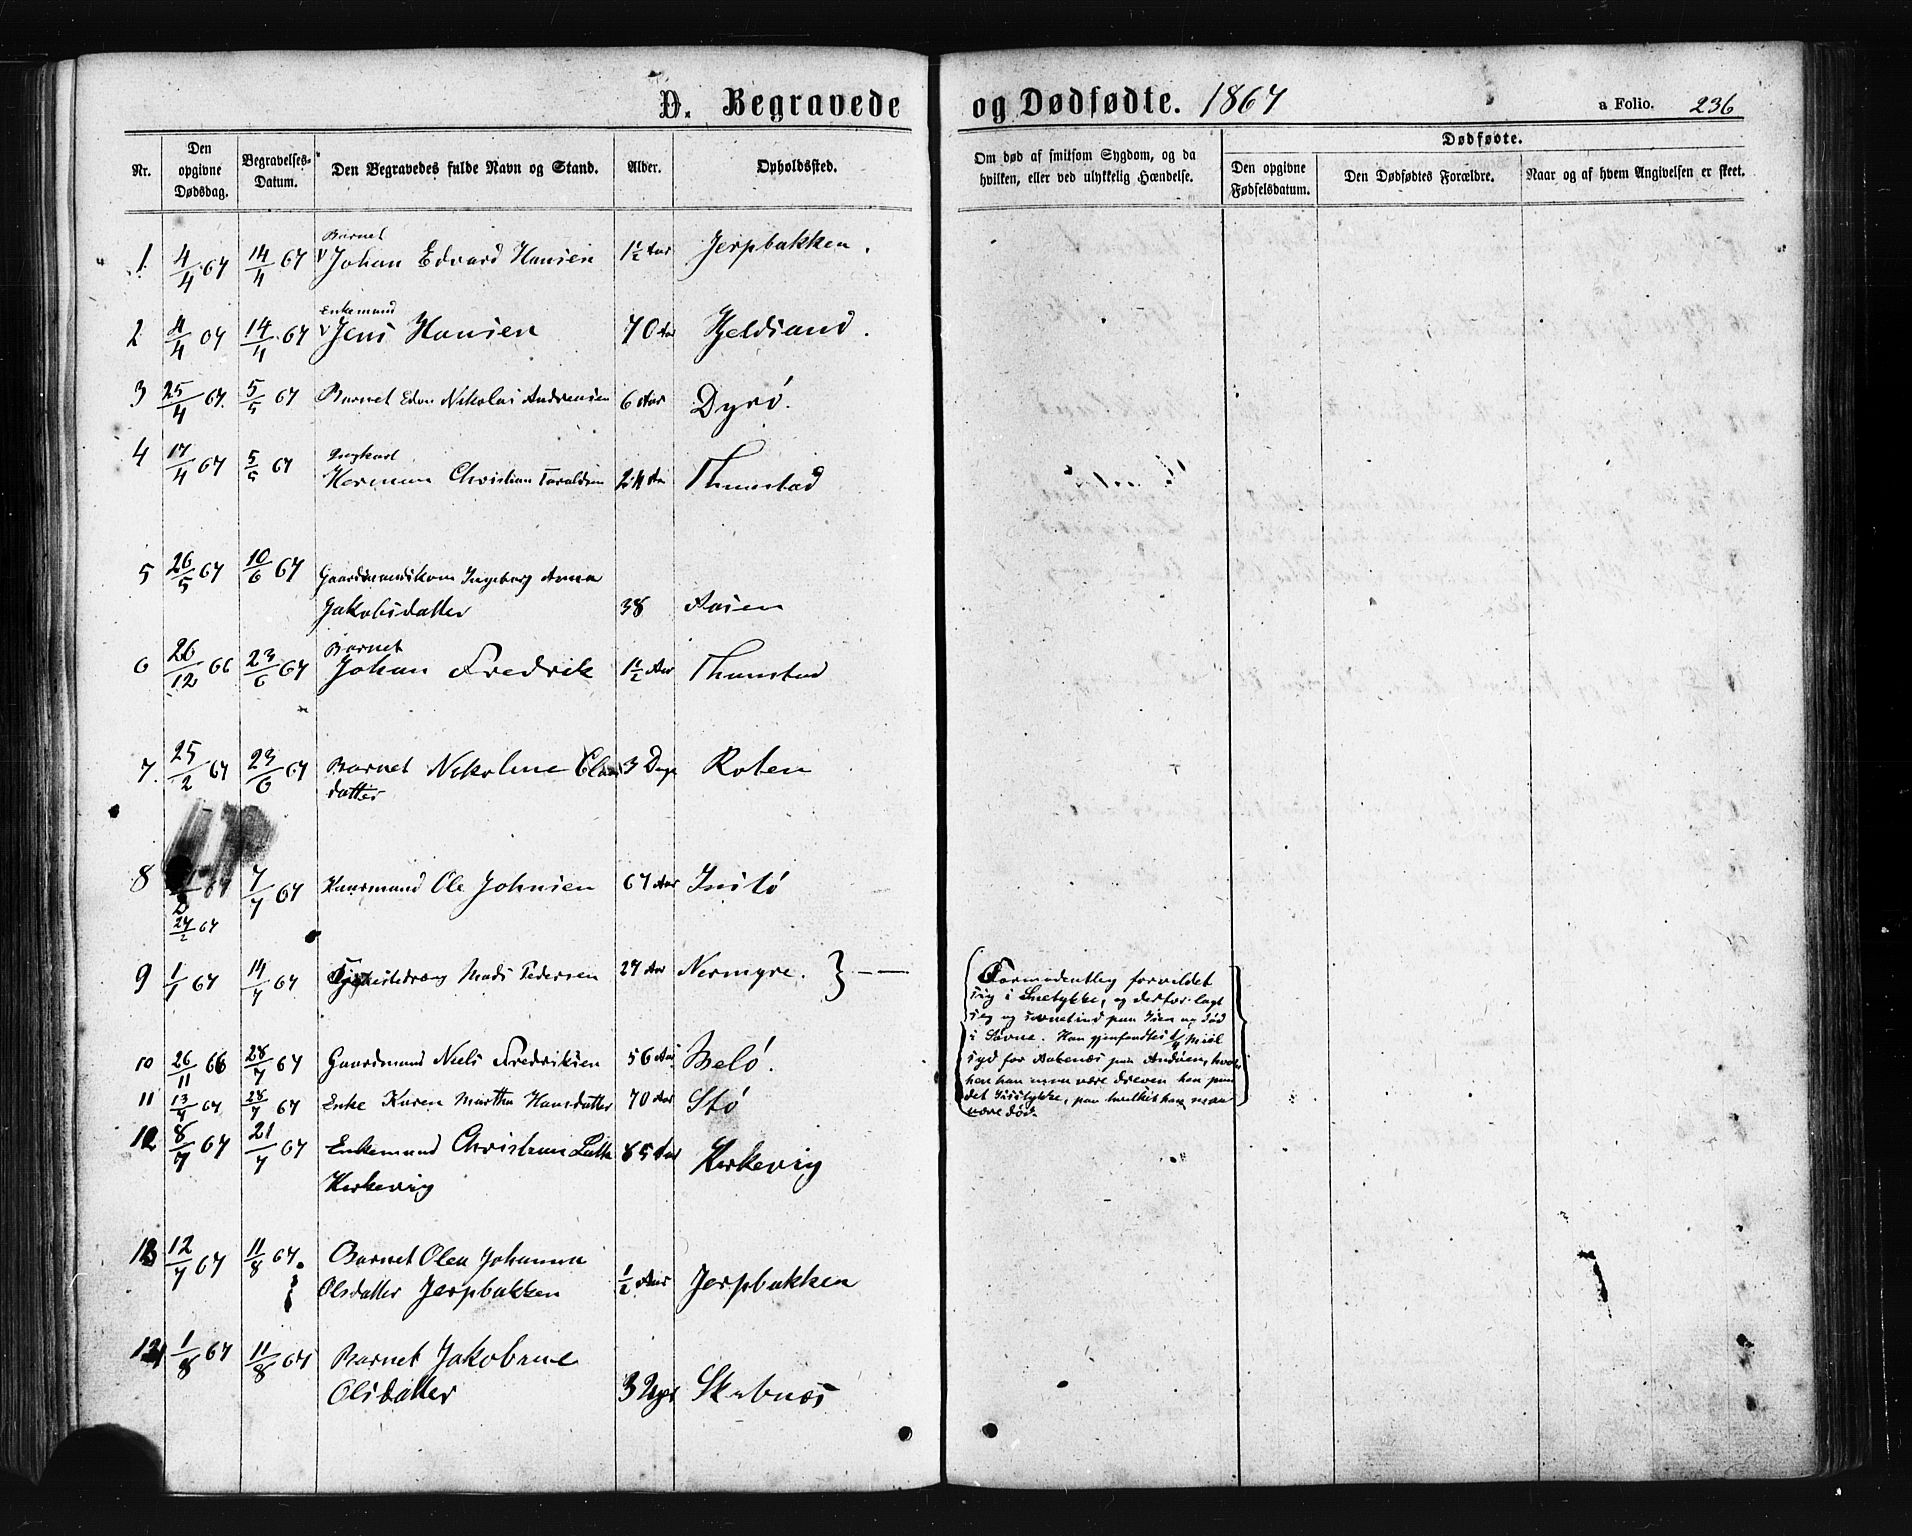 D. Begravede og Dødfødte. 1867 a Folio. 236
Nr.
Den opgivne Dødsdag.
Begravelses-Datum.
Den Begravedes fulde Navn og Stand.
Alder.
Opholdssted.
Om død af smitsom Sygdom, og da hvilken, eller ved ulykkelig Hændelse.
Dødfødte.
Den opgivne Fødselsdatum.
Den Dødfødtes Forældre.
Naar og af hvem Angivelsen er skeet.
Barnet
1 4/4 67 14/4 67 Johan Edvard Hansen 1½ Aar Jerpbakken.
Enkemand
2 4/4 67 14/4 67 Jens Hansen 70 Aar Hjeldsand.
3 25/4 67. 5/5 67 Barnet Edv. Nikolai Andreasen 6 Aar Dyrö.
Ungkarl
4 17/4 67 5/5 67 Herman Christian Taraldsen 24 Aar Thunstad
5 26/5 67 10/6 67 Gaardmandskone Ingeborg Anna
Jakobsdatter 38 Aasen
Barnet
6 26/12 66 23/6 67 Johan Fredrik 1½ Aar Thunstad
7. 25/2 67 23/6 67 Barnet Nikoline Elias 3 Dage Roten
datter
8 7/7 67 Kaarmand Ole Johnsen 67 Aar Instö
24/2 67
9 1/1 67 14/7 67 Tjenestedreng Mads Pedersen 27 Aar Nermyre. } — —
Formodentlig forvildet
sig i Snetykke, og derfor lagt
sig og sovnet ind paa Isen og død
i Søvne. Han gjenfandtes ¼ Miil
syd for Aabenæs paa Andöen, hvor
hen han maa være dreven hen paa
det Iisstykke, paa hvilket han maa
være død.
10 26/11 66 28/7 67 Gaardmand Niels Fredriksen 56 Aar Melö.
11 13/7 67 28/7 67 Enke Karen Martha Hansdatter 70 Aar Stö
12 8/7 67 21/7 67 Enkemand Christian 85 Aar Kirkevig
Kirkevig
13 12/7 67 11/8 67. Barnet Olea Johanna
Olsdatter Jerpbakken ½ Aar Jerpbakken
14 1/8 67 11/8 67 Barnet Jakobine
Olsdatter 3 Uger Skabnæs